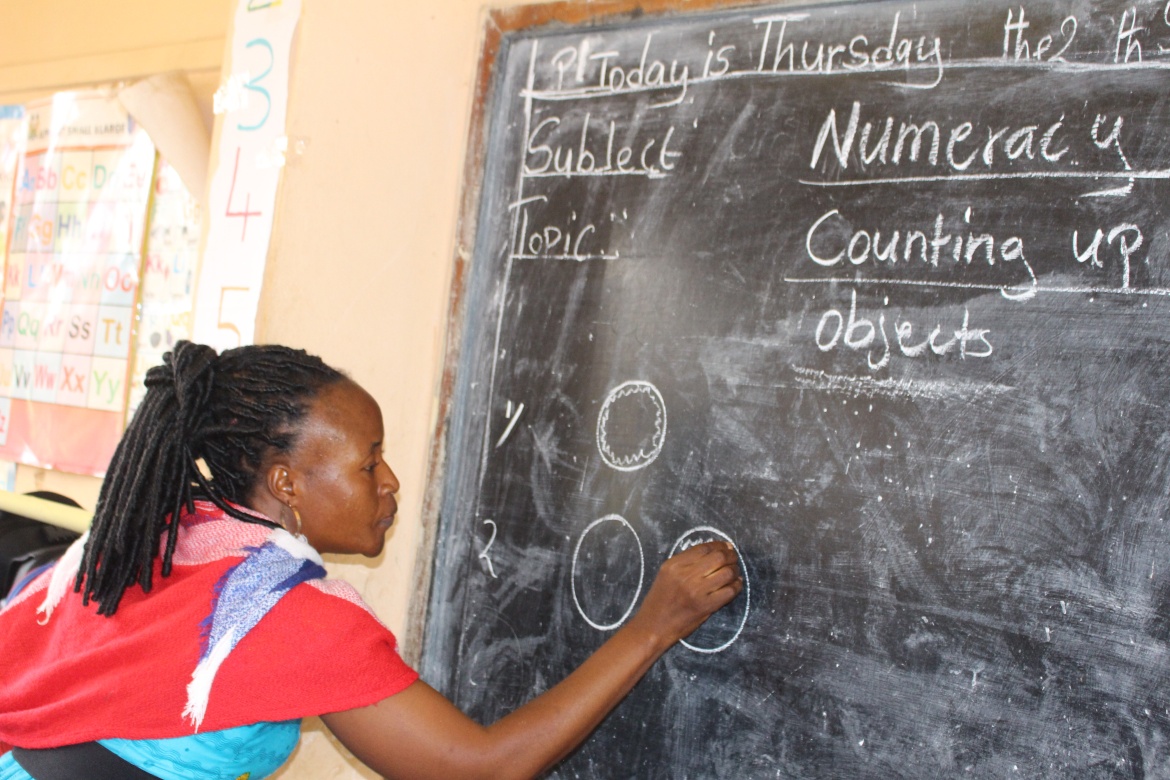 2
3
4
5
Aa Bb Cc Dd
Gg Hh
Oo
Pp Qq Rr Ss Tt
Vv Ww Xx Yy
P1 Today is Thursday the 2 th
Subject Numeracy
Topic: Counting up
objects
1/
2